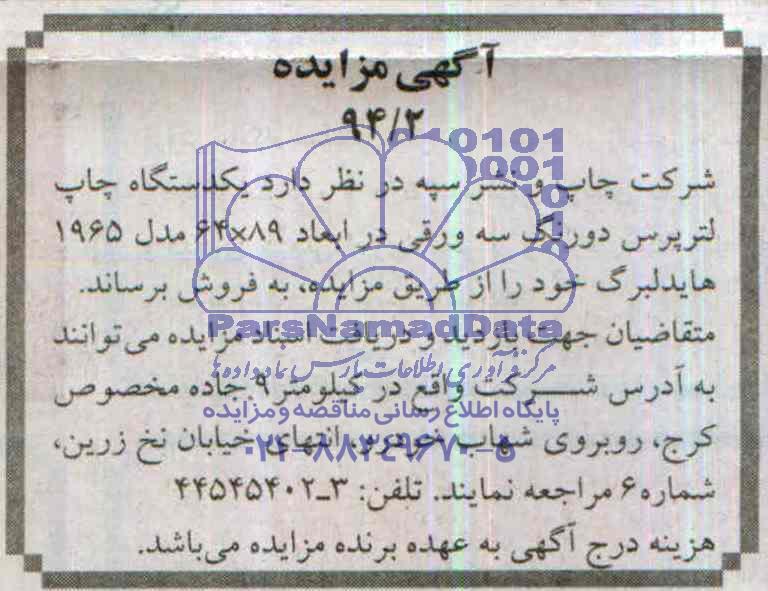 آگهی مزایده
۹۴/۲
شرکت چاپ و نشر سپه در نظر دارد یکدستگاه چاپ
لترپرس دورنگ سه ورقی در ابعاد ۸۹×۶۴ مدل ۱۹۶۵
هایدلبرگ خود را از طریق مزایده، به فروش برساند.
متقاضیان جهت بازدید و دریافت اسناد مزایده می‌توانند
به آدرس شرکت واقع در کیلومتر ۹ جاده مخصوص
کرج، روبروی شهاب خودرو، انتهای خیابان نخ زرین،
شماره ۶ مراجعه نمایند. تلفن: ۳-۴۴۵۴۵۴۰۲
هزینه درج آگهی به عهده برنده مزایده می‌باشد.
010101
0001
ParsNamadData
مرکز فرآوری اطلاعات پارس نماد داده‌ها
پایگاه اطلاع رسانی مناقصه و مزایده
۰۲۱-۸۸۳۴۹۶۷۰-۵